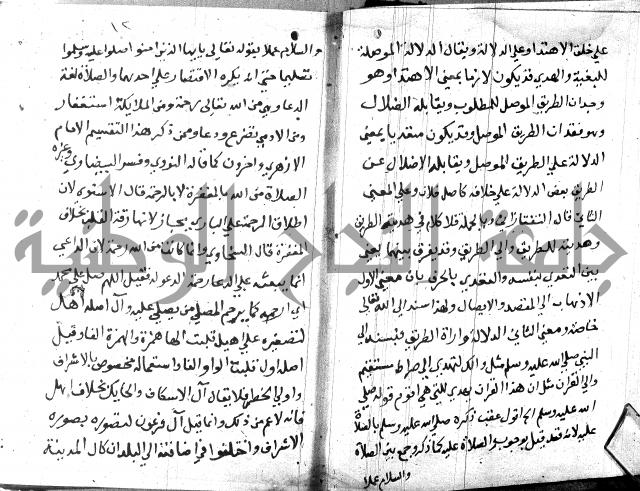 على خلق الاهتداء وعلى الدلالة ويقال الدلالة الموصلة
للبغية والهدي قد يكون لازما بمعنى الاهتداء وهو
وجدان الطريق الموصل للمطلوب ويقابله الضلال
وهو فقدان الطريق الموصل وقد يكون متعديا بمعنى
الدلالة على الطريق الموصل ويقابله الاضلال عن
الطريق بمعنى الدلالة على خلافه كاضل فلان وعلى المعنى
الثاني قاله التفتازاني وبالجملة فلا كلام في هديته الطريق
وهديته للطريق والى الطريق وقد يفرق بينها بمعنى
بين المتعدي بنفسه والمتعدي بالحرف بان معنى الاول
الاذهاب الى المقصد والايصال ولهذا يسند الى الله تعالى
خاصة ومعنى الثاني الدلالة واراة الطريق فيسند الى
النبي صلى الله عليه وسلم مثل وانك لتهدي الى صراط مستقيم
والى القران مثل ان هذا القران يهدي للتي هي اقوم قوله صلى
الله عليه وسلم اقول عقب ذكره صلى الله عليه وسلم بالصلاة
عليه لانه فقد قيل بوجوب الصلاة عليه كلما ذكر وجمع بين الصلاة
والسلام عملا
١٢
والسلام عملا بقوله تعالى يا ايها الذين امنوا صلوا عليه وسلموا
تسليما حتى انه يكره الاقتصار على احدهما والصلاة لغة
الدعاء وهي من الله تعالى رحمة ومن الملايكة استغفار
ومن الادمي تضرع ودعا وممن ذكر هذا التقسيم الامام
الازهري واخرون كما قاله النووي وفسر البيضاوي وغيره
الصلاة من الله بالمغفرة لا بالرحمة قال الاسنوي لان
اطلاق الرحمة على الباري مجاز لانها رقة القلب بخلاف
المغفرة قال السخاوي وانما كانت من الله رحمة لان الداعي
انما يبعثه على الدعا رحمة المدعو له فقيل اللهم صل على محمد
اي ارحمه كما يرحم المصلي من يصلي عليه وآل اصله اهل
لتصغيره على اهيل قلبت الها همزة والهمزة الفا وقيل
اصله اول قلبت الواو الفا واستعماله مخصوص بالاشراف
واولي الخطر فلا يقال آل الاسكاف والحايك بخلاف اهل
فانه لاعم من ذلك وانما قيل آل فرعون لتصوره بصورة
الاشراف واختلفوا في اضافته الى البلدان كآل المدينة
جامعة النجاح الوطنية